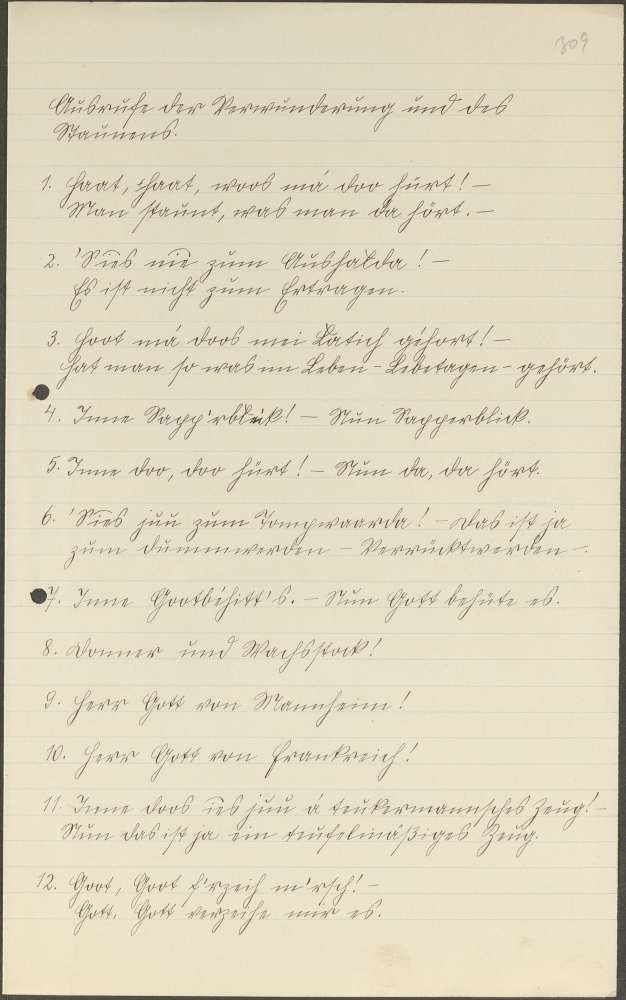 309
Ausrufe der Verwunderung und des
Staunens.
1. Haat, haat, woos má doo hürt! –
Man staunt, was man da hört. –
2. 'Sies nie zum Aushalda! –
Es ist nicht zum Ertragen.
3. Hoot má doos mei Latich géhort! –
Hat man so was im Leben – Lebetagen – gehört.
4. Inne Sapp'rblick! – Nun Sapperblick.
5. Inne doo, doo hürt! – Nun da, da hört.
6. 'Sies juu zum Tompwaarda! – Das ist ja
zum dummwerden – Verrücktwerden –.
7. Inne Gootbéhitt's. – Nun Gott behüte es.
8. Donner und Wachsstock!
9. Herr Gott von Mannheim!
10. Herr Gott von Frankreich!
11. Inne doos ies juu á teukermannsches Zeug! –
Nun das ist ja ein teufelmäßiges Zeug.
12. Goot, Goot f'rzeih m'rsch! –
Gott, Gott verzeihe mir es.